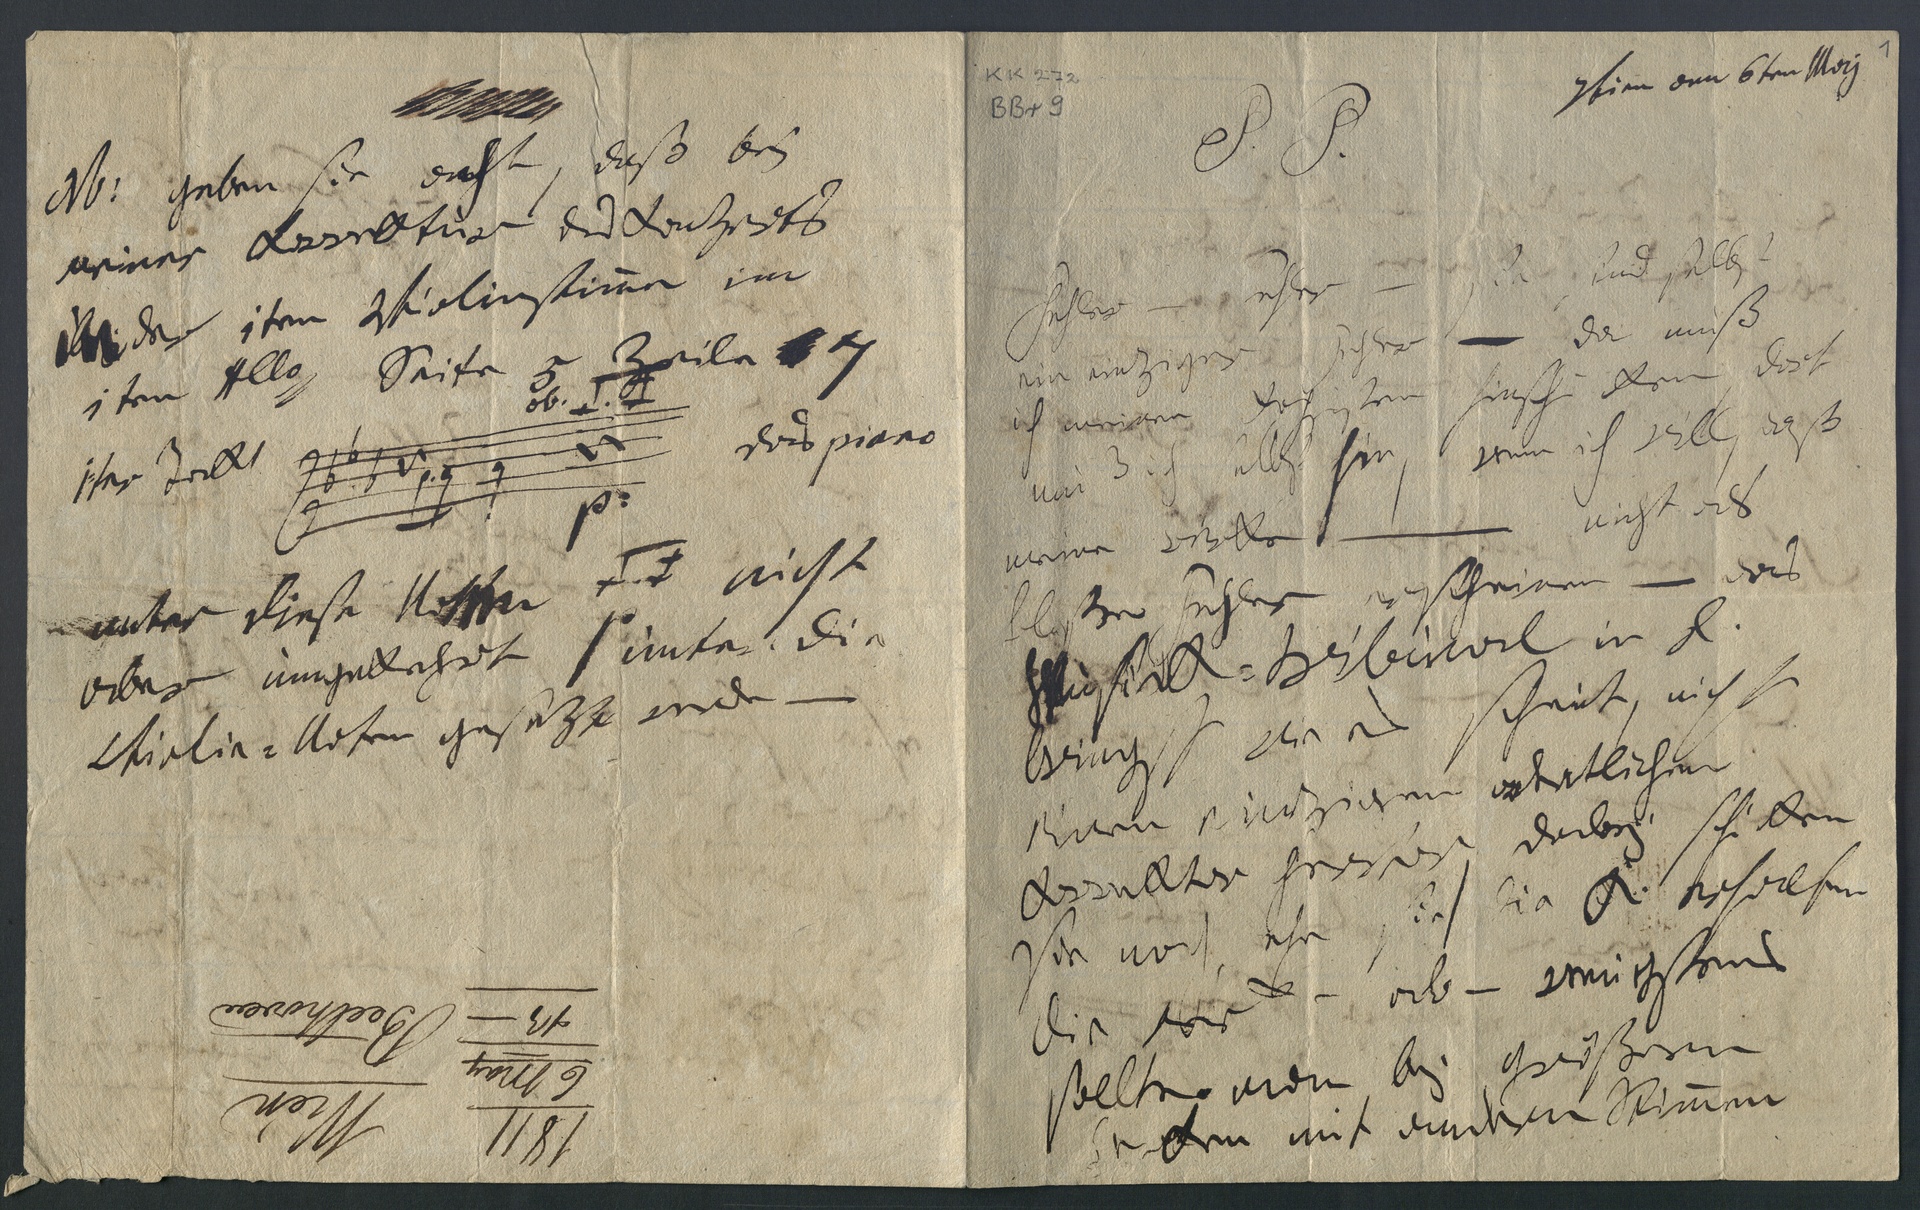 Nb: geben sie acht, daß bej
meiner Correcktur des Konzerts
in der 1ten Violinstimme im
1ten Allo Seite 5 Zeile 7
ob.
1ter Takt
das piano
p:
unter diese Noten nicht
aber umgekehrt unter die
Violin=Noten gesezt werde —
Wien
1811
6 May
13 —
Beethoven
KK 272
BBr 9
1
Vien am 6ten May
P. P.
Fehler — Fehler — sie sind selbst
ein einziger Fehler — da muß
ich meinen Copisten hinschicken, dort
muß ich selbst hin, wenn ich will, daß
meine Werke — nicht als
bloße Fehler erscheinen — das
Musick=tribunal in L.
bringt wie es scheint, nicht
einen einzigen ordentlichen
Correcktor hervor, dabej schicken
sie noch, ehe sie die C. erhalten
die werke ab — wenigstens
sollte man bej größern
werken mit andern Stimmen